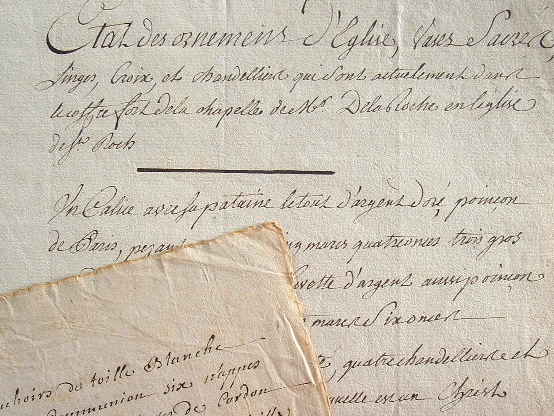 Etat des ornemens d'Eglise, Vases Sacrés,
Linges, Croix et chandelliers qui sont actuellement dans
le coffre fort de la chapelle de Mr. De la Roche en leglise
de St. Roch
Un Calice avec sa pataine le tout d'argent doré, poinçon
de Paris, pezant marcs quatre onces trois gros
d'argent aussi poinçon
marcs Six onces
quatre chandelliers et
est un Christ
de toille Blanche
Communion six nappes
de Cordon